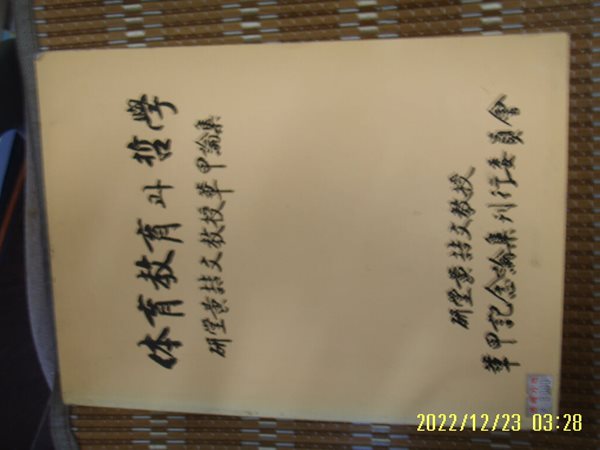 体育教育과 哲學
研堂黃喆文敎授華甲論集
研堂黃喆文敎授
華甲記念論集刊行委員會
2022/12/23 03:28